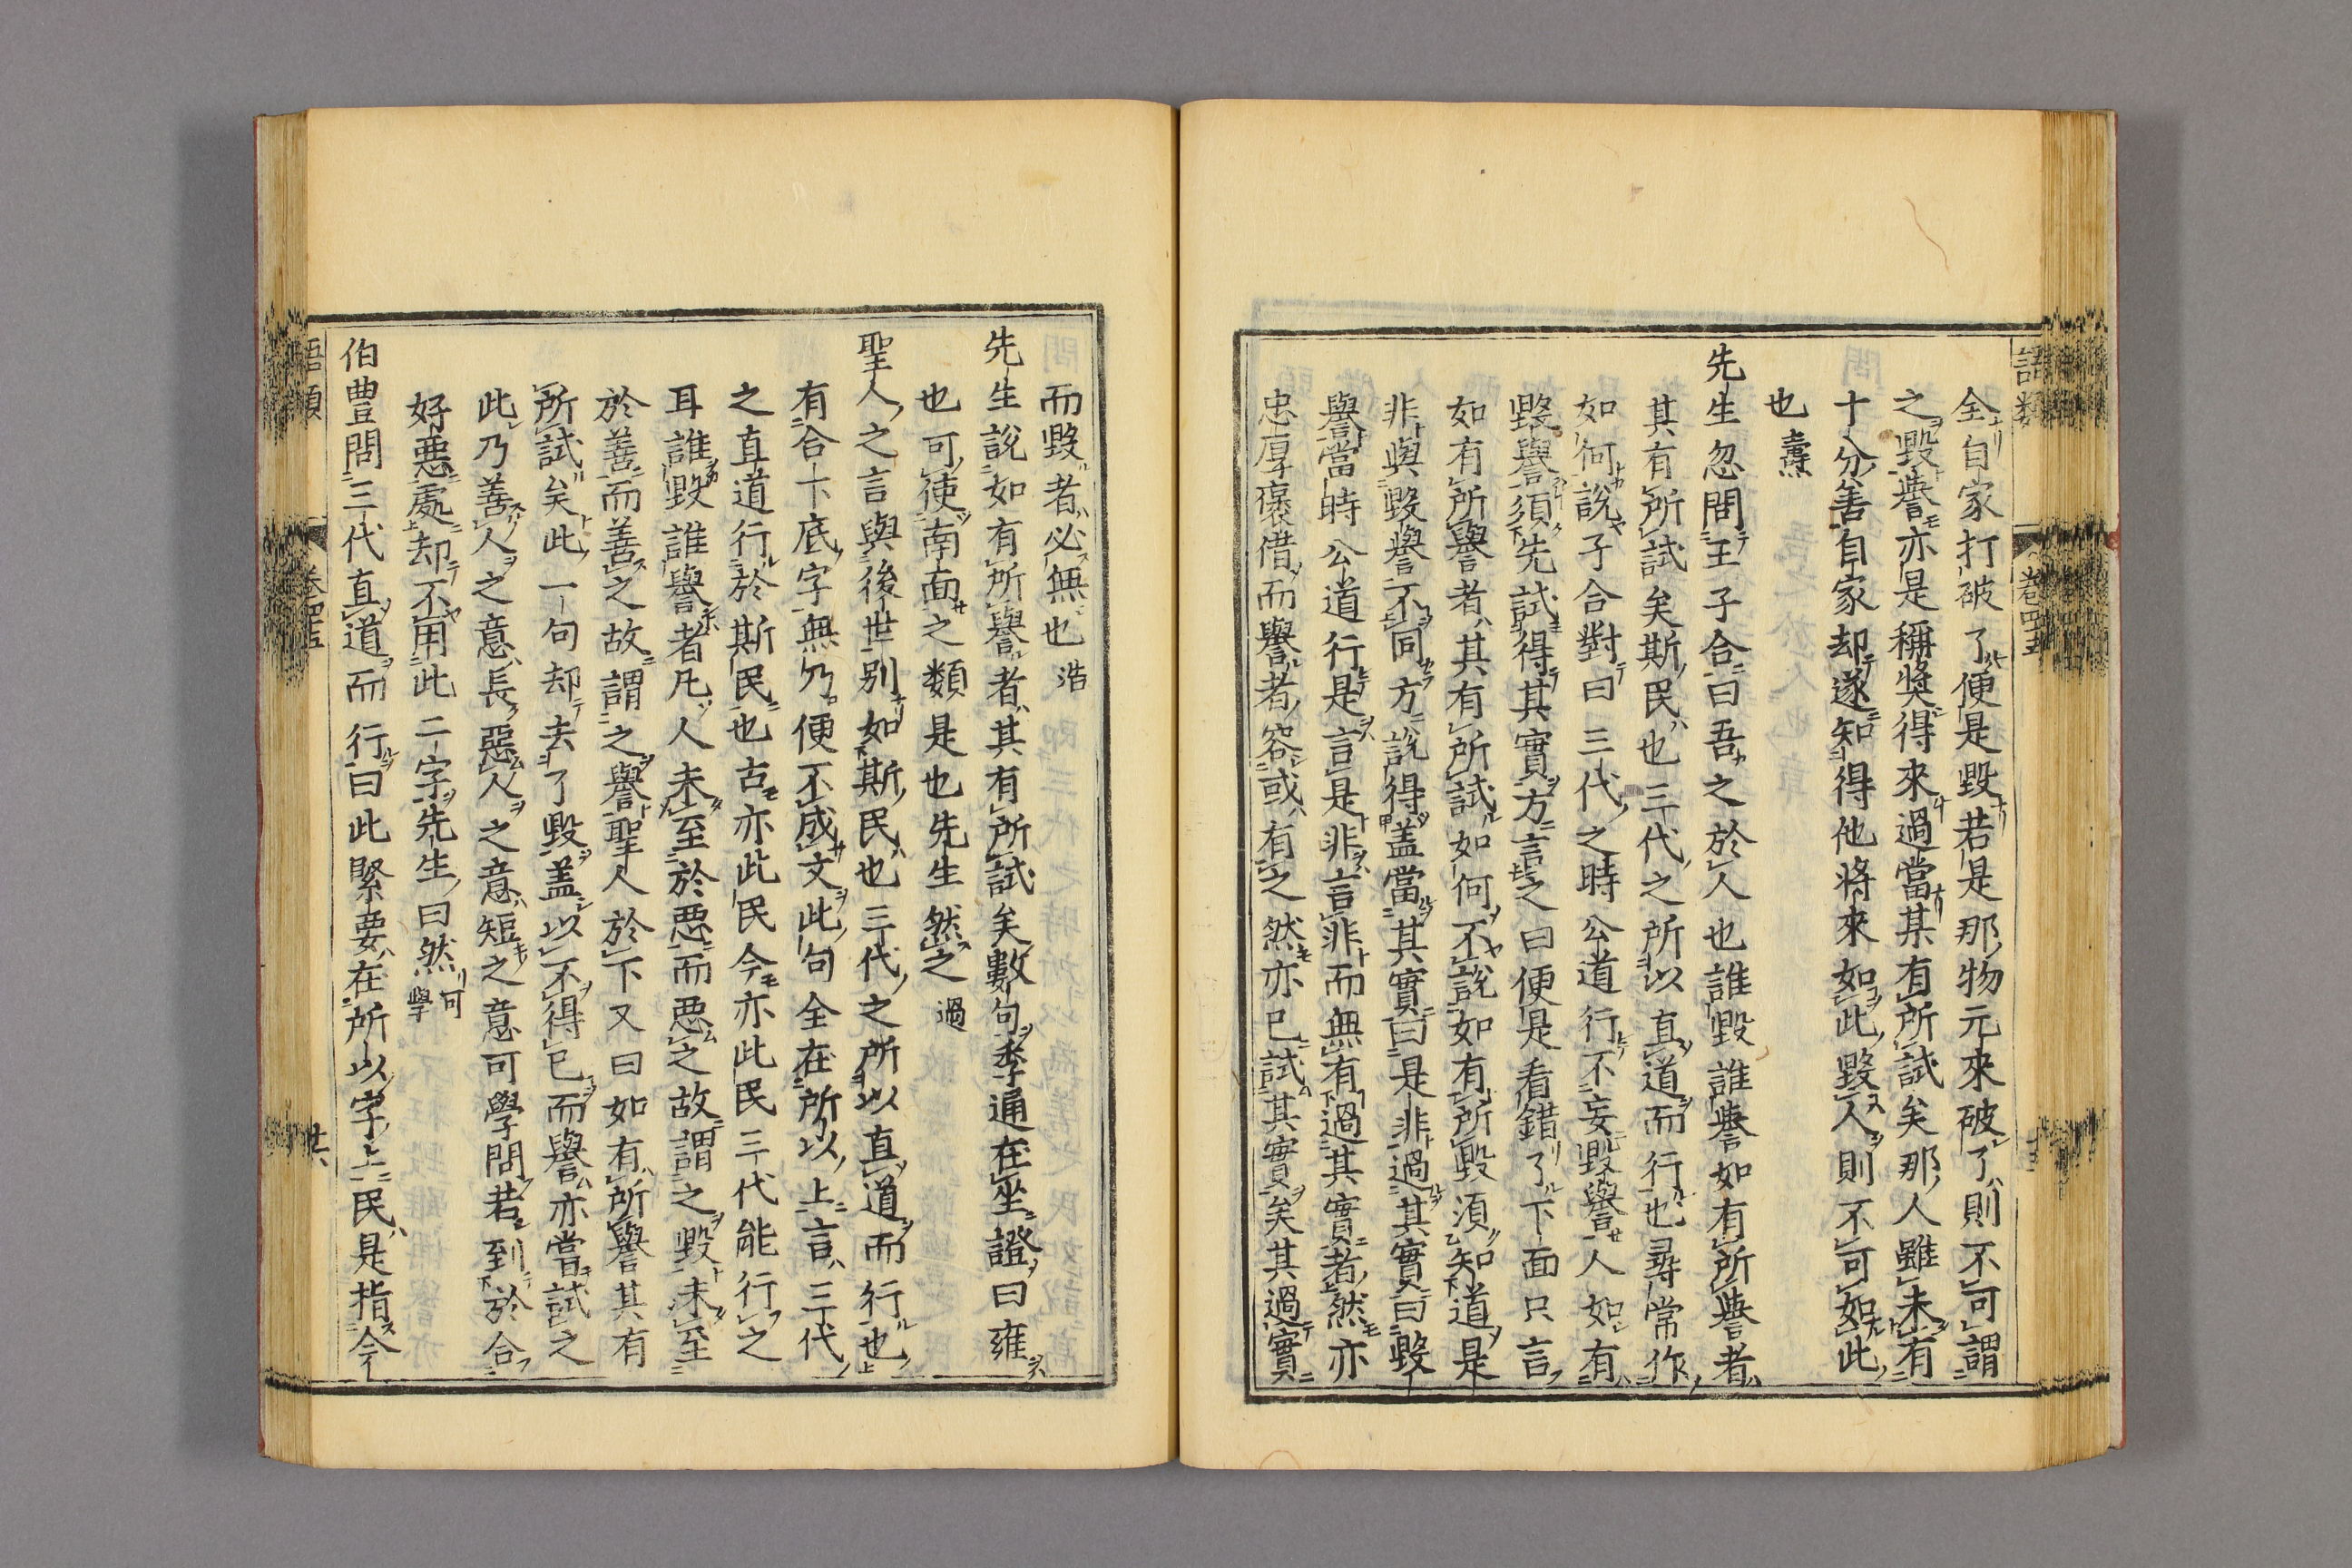 語類
卷四十五
全自家打破了便是毀若是那物元來破了則不可謂
之毀譽亦是稱獎得來過當其有所試矣那人雖未有
十分善自家却遂知得他將來如此毀人則不可如此
也 燾
先生忽問王子合曰吾之於人也誰毀誰譽如有所譽者
其有所試矣斯民也三代之所以直道而行也尋常作
如何說子合對曰三代之時公道行不妄毀譽人如有
毀譽須先試得其實方言之曰便是看錯了下面只言
如有所譽者其有所試如何不說如有所毀須知道是
非與毀譽不同方說得盖當其實曰是非過其實曰毀
譽當時公道行是言是非言非而無有過其實者然亦
忠厚褒借而譽者容或有之然亦已試其實矣其過實
而毀者必無也 浩
先生說如有所譽者其有所試矣數句季通在坐證曰雍
也可使南面之類是也先生然之 過
聖人之言與後世別如斯民也三代之所以直道而行也
有合下底字無乃便不成文此句全在所以上言三代
之直道行於斯民也古亦此民今亦此民三代能行之
耳誰毀誰譽者凡人未至於惡而惡之故謂之毀未至
於善而善之故謂之譽聖人於下又曰如有所譽其有
所試矣此一句却去了毀盖以不得已而譽亦嘗試之
此乃善人之意長惡人之意短之意可學問若到於合
好惡處却不用此二字先生曰然 可學
伯豊問三代直道而行曰此緊要在所以字上民是指今
語類
卷四十五
廿六